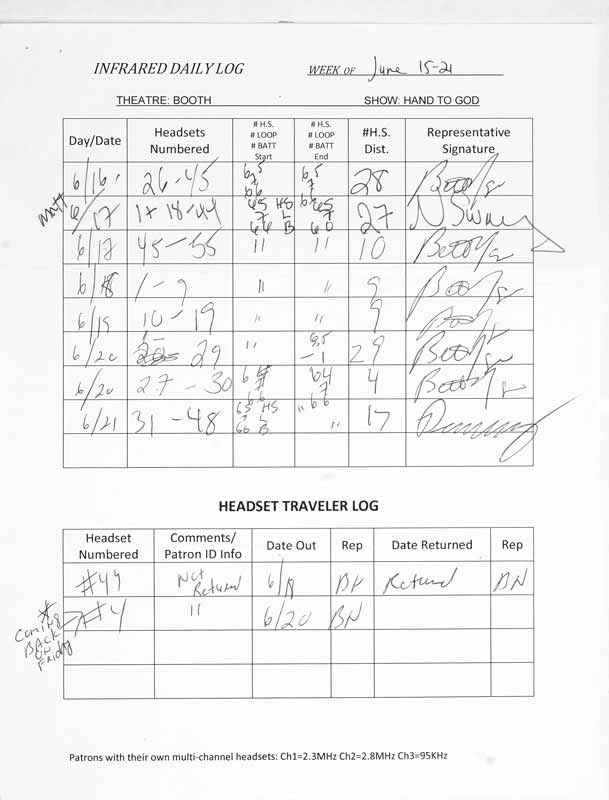 INFRARED DAILY LOG WEEK OF June 15-21
THEATRE: BOOTH SHOW: HAND TO GOD
Day/Date Headsets Numbered # H.S. # LOOP # BATT Start # H.S. # LOOP # BATT End #H.S. Dist. Representative Signature
6/16 26-45 65 7 66 65 7 66 28
Matt 6/17 17 18-44 65 HS 7 L 66 B 65 7 60 27
6/17 45-55 11 11 10
6/18 1-9 11 11 9
6/19 10-19 " " 9
6/20 29 11 -1 29
6/20 27-30 64 7 66 4
6/21 31-48 65 HS 7 L 66 B " 17
HEADSET TRAVELER LOG
Headset Numbered Comments/ Patron ID Info Date Out Rep Date Returned Rep
#44 Not Returned 6/18 BN Returned BN
#4 11 6/20 BN
* Coming BACK ON Friday
Patrons with their own multi-channel headsets: Ch1=2.3MHz Ch2=2.8MHz Ch3=95KHz